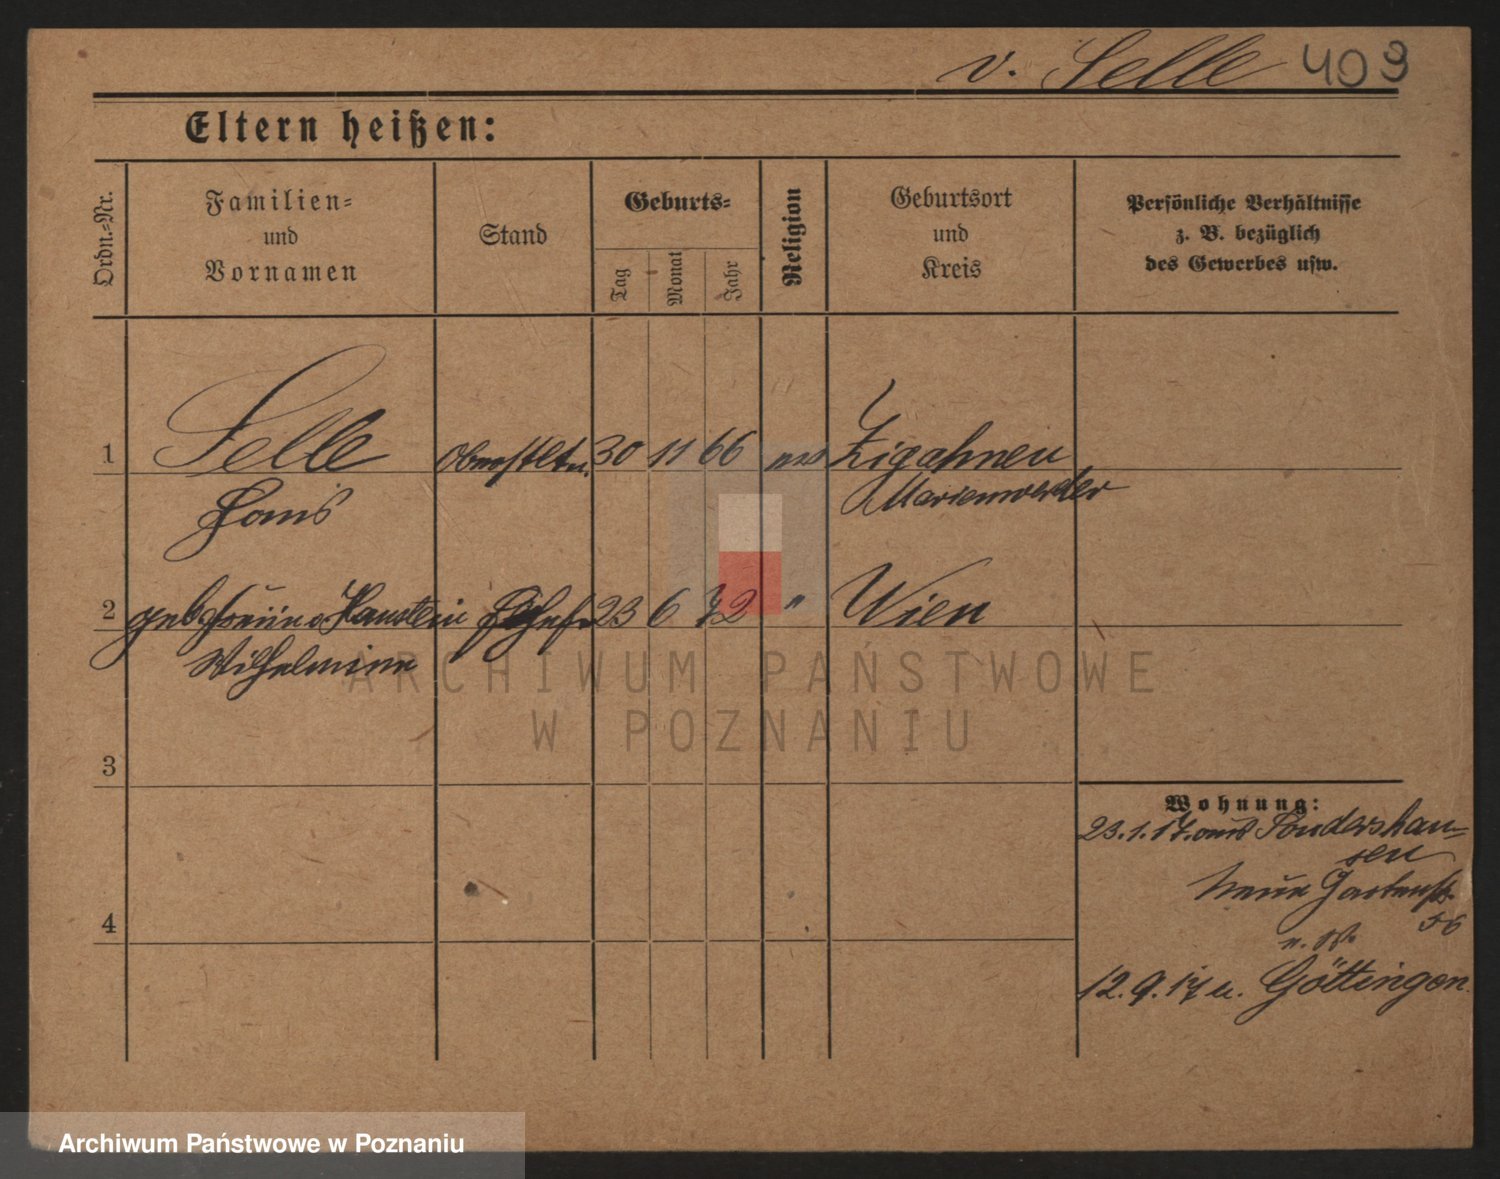 v. Selle 409
Eltern heißen:
Ordn.-Nr.
Familien-
und
Vornamen
Stand
Geburts-
Tag
Monat
Jahr
Religion
Geburtsort
und
Kreis
Persönliche Verhältnisse
z. B. bezüglich
des Gewerbes usw.
1 Selle Oberstltn. 30 11 66 ev Zigahnen
Hans Marienwerder
2 geb. Freiin v. Hanstein 23 6 72 " Wien
Wilhelmine
3
4
Wohnung:
23.1.17. aus Sondershau-
sen
Neue Gartenstr.
56
12.9.17 n. Göttingen
ARCHIWUM PAŃSTWOWE
W POZNANIU
Archiwum Państwowe w Poznaniu